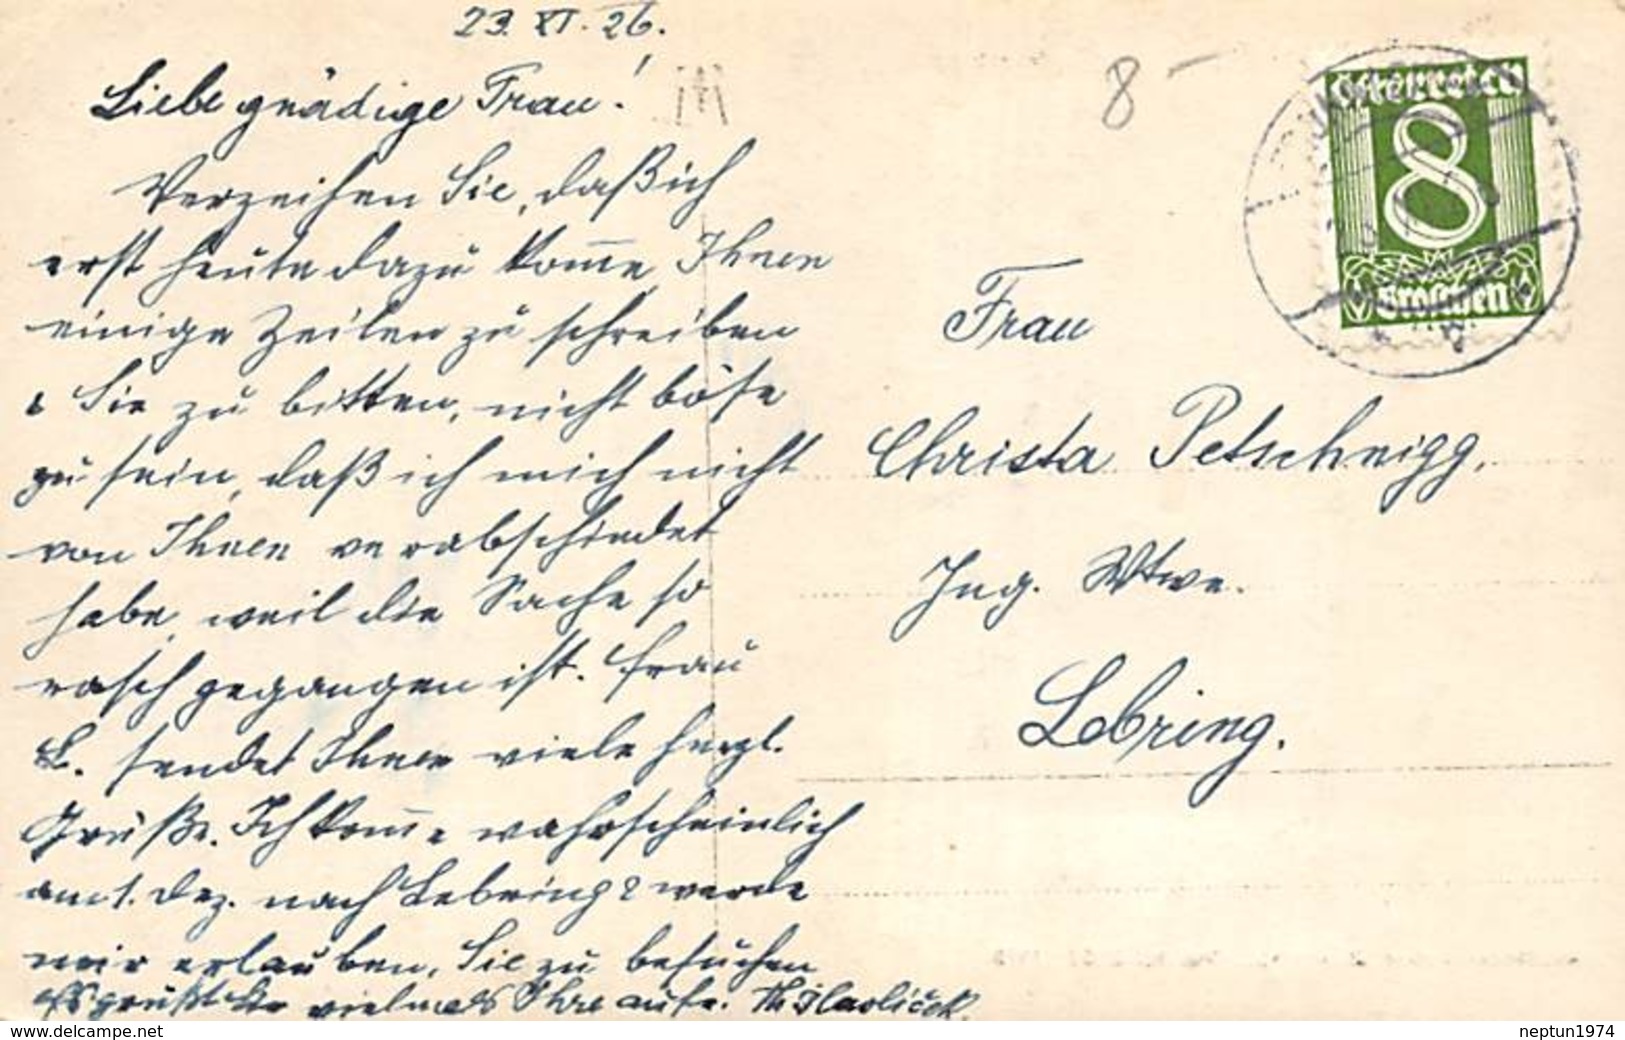 23. XI. 26.
8 -
Liebe gnädige Frau!
Verzeihen Sie, daß ich
erst heute dazu kom̅e, Ihnen
einige Zeilen zu schreiben
& Sie zu bitten, nicht böse
zu sein, daß ich mich nicht
von Ihnen verabschiedet
habe, weil die Sache so
rasch gegangen ist. Frau
L. sendet Ihnen viele herzl.
Grüße. Ich kom̅e wahrscheinlich
am 1. Dez. nach Lebring & werde
mir erlauben, Sie zu besuchen
Es grüßt Sie vielmals Ihre aufr.
Österreich
8
Groschen
Frau
Christa Petschnigg,
Ing. Wtwe.
Lebring.
www.delcampe.net
neptun1974